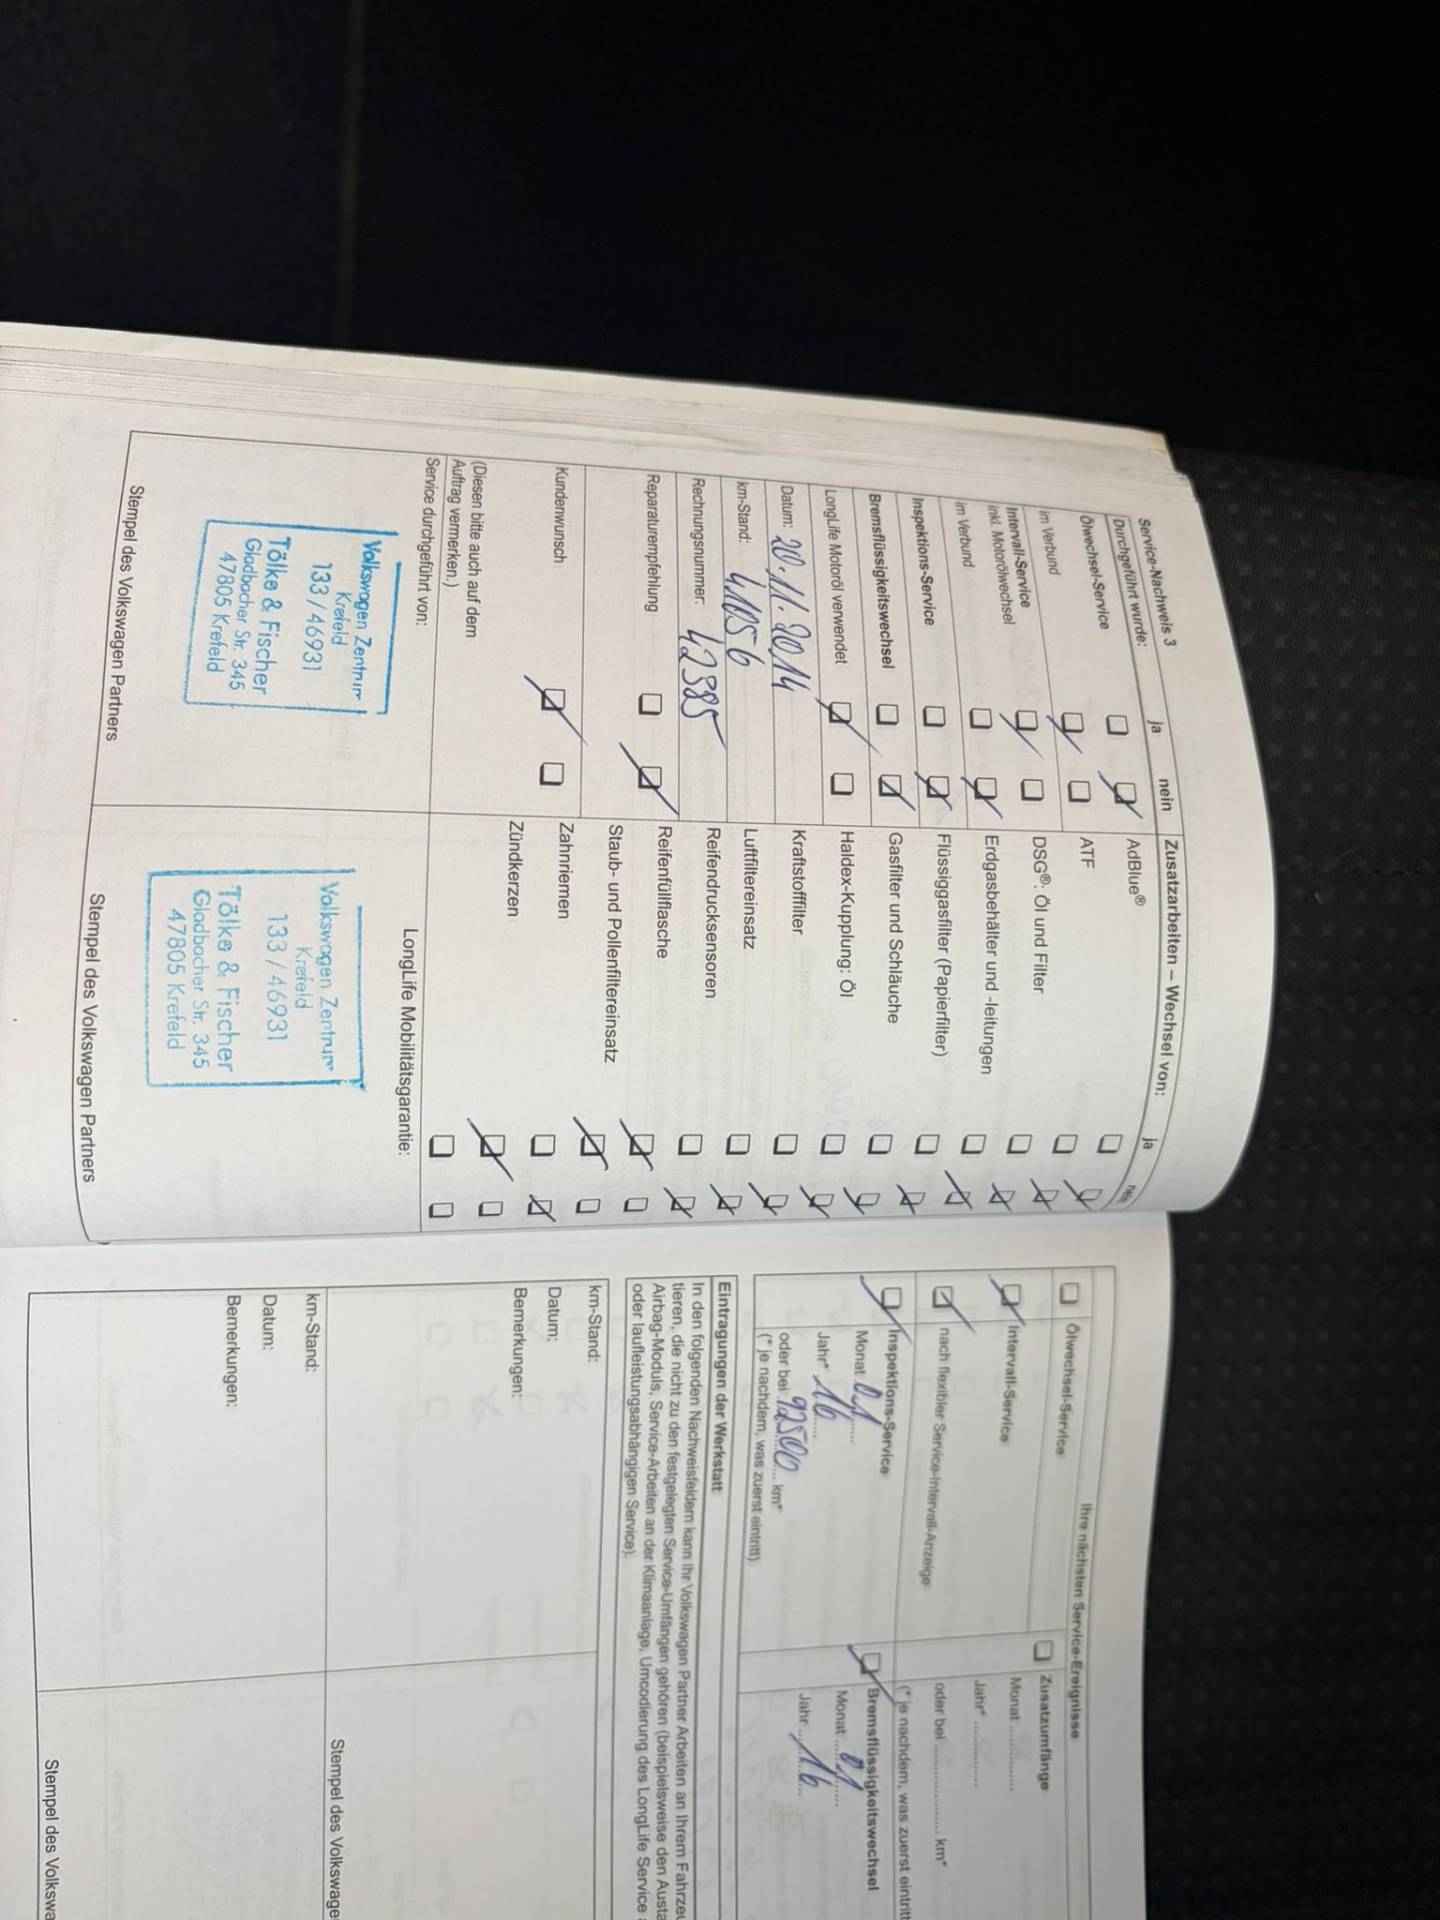 Service-Nachweis 3
Durchgeführt wurde: ja nein
Ölwechsel-Service
im Verbund
Intervall-Service
inkl. Motorölwechsel
im Verbund
Inspektions-Service
Bremsflüssigkeitswechsel
LongLife Motoröl verwendet
Datum: 20.11.2014
km-Stand: 41056
Rechnungsnummer: 42385
Reparaturempfehlung
Kundenwunsch
(Diesen bitte auch auf dem
Auftrag vermerken.)
Service durchgeführt von:
Volkswagen Zentrum
Krefeld
133/46931
Tölke & Fischer
Gladbacher Str. 345
47805 Krefeld
Stempel des Volkswagen Partners
Zusatzarbeiten – Wechsel von: ja nein
AdBlue®
ATF
DSG®: Öl und Filter
Erdgasbehälter und -leitungen
Flüssiggasfilter (Papierfilter)
Gasfilter und Schläuche
Haldex-Kupplung: Öl
Kraftstofffilter
Luftfiltereinsatz
Reifendrucksensoren
Reifenfüllflasche
Staub- und Pollenfiltereinsatz
Zahnriemen
Zündkerzen
LongLife Mobilitätsgarantie:
Volkswagen Zentrum
Krefeld
133/46931
Tölke & Fischer
Gladbacher Str. 345
47805 Krefeld
Stempel des Volkswagen Partners
Ihre nächsten Service-Ereignisse
Ölwechsel-Service
Intervall-Service
nach flexibler Service-Intervall-Anzeige
Inspektions-Service
Monat 01
Jahr* 16
oder bei 92500 km*
(*je nachdem, was zuerst eintritt)
Zusatzumfänge
Monat
Jahr*
oder bei km*
(*je nachdem, was zuerst eintritt
Bremsflüssigkeitswechsel
Monat 01
Jahr 16
Eintragungen der Werkstatt
In den folgenden Nachweisfeldern kann Ihr Volkswagen Partner Arbeiten an Ihrem Fahrzeu
tieren, die nicht zu den festgelegten Service-Umfängen gehören (beispielsweise den Austa
Airbag-Moduls, Service-Arbeiten an der Klimaanlage, Umcodierung des LongLife Service
oder laufleistungsabhängigen Service).
km-Stand:
Datum:
Bemerkungen:
Stempel des Volkswage
km-Stand:
Datum:
Bemerkungen:
Stempel des Volkswa